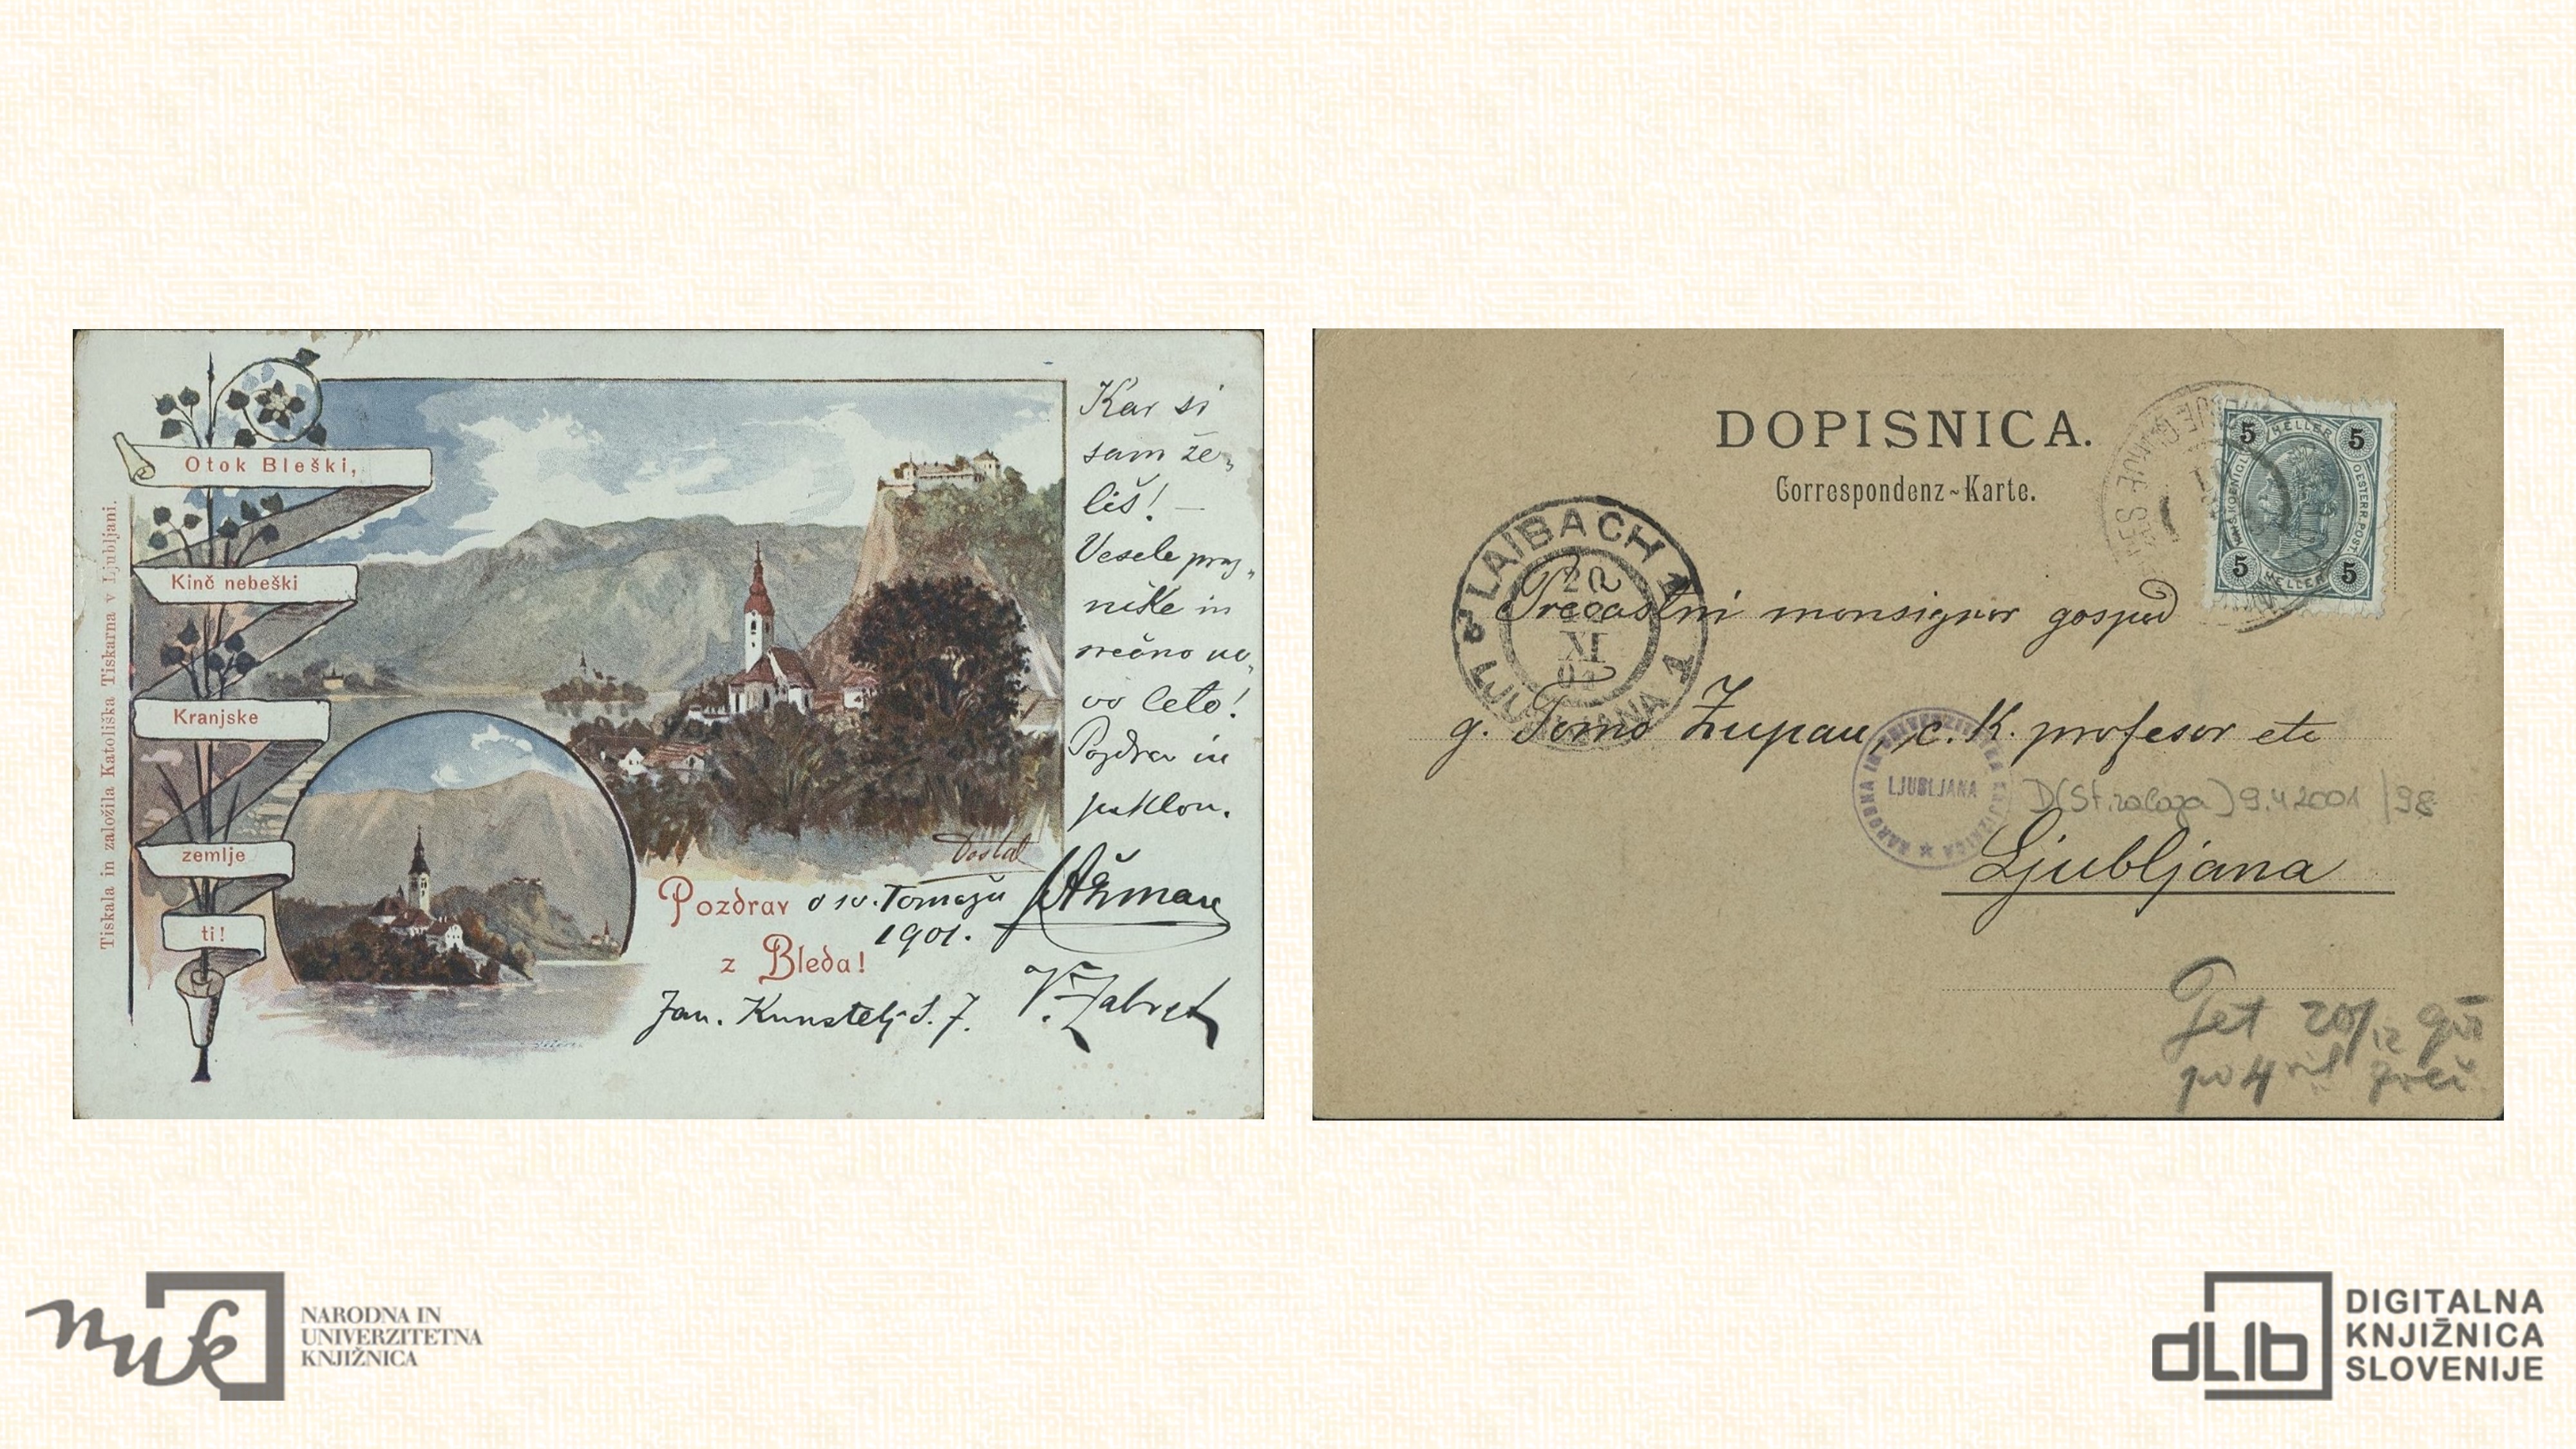 Tiskala in založila Katoliška Tiskarna v Ljubljani.
Otok Bleški,
Kinč nebeški
Kranjske
zemlje
ti!
Kar si
sam že„
liš! —
Vesele praz„
nike in
srečno no„
vo leto!
Pozdrav in
poklon.
Dostal
Pozdrav o sv. Tomažu
1901.
z Bleda!
Ažman
Jan. Kunstelj S. J.
V. Zabret
DOPISNICA.
Correspondenz-Karte.
5 HELLER 5
OESTERR. POST.
5 HELLER 5
LAIBACH 1
LJUBLJANA
20
XI
Prečastni monsignor gospod
g. Tomo Zupan, c. K. profesor etc
NARODNA IN UNIVERZITETNA KNJIŽNICA
LJUBLJANA
D(St. zaloga) 9.4 2001 / 98
Ljubljana
20/12
NARODNA IN
UNIVERZITETNA
KNJIŽNICA
nuk
dLib
DIGITALNA
KNJIŽNICA
SLOVENIJE